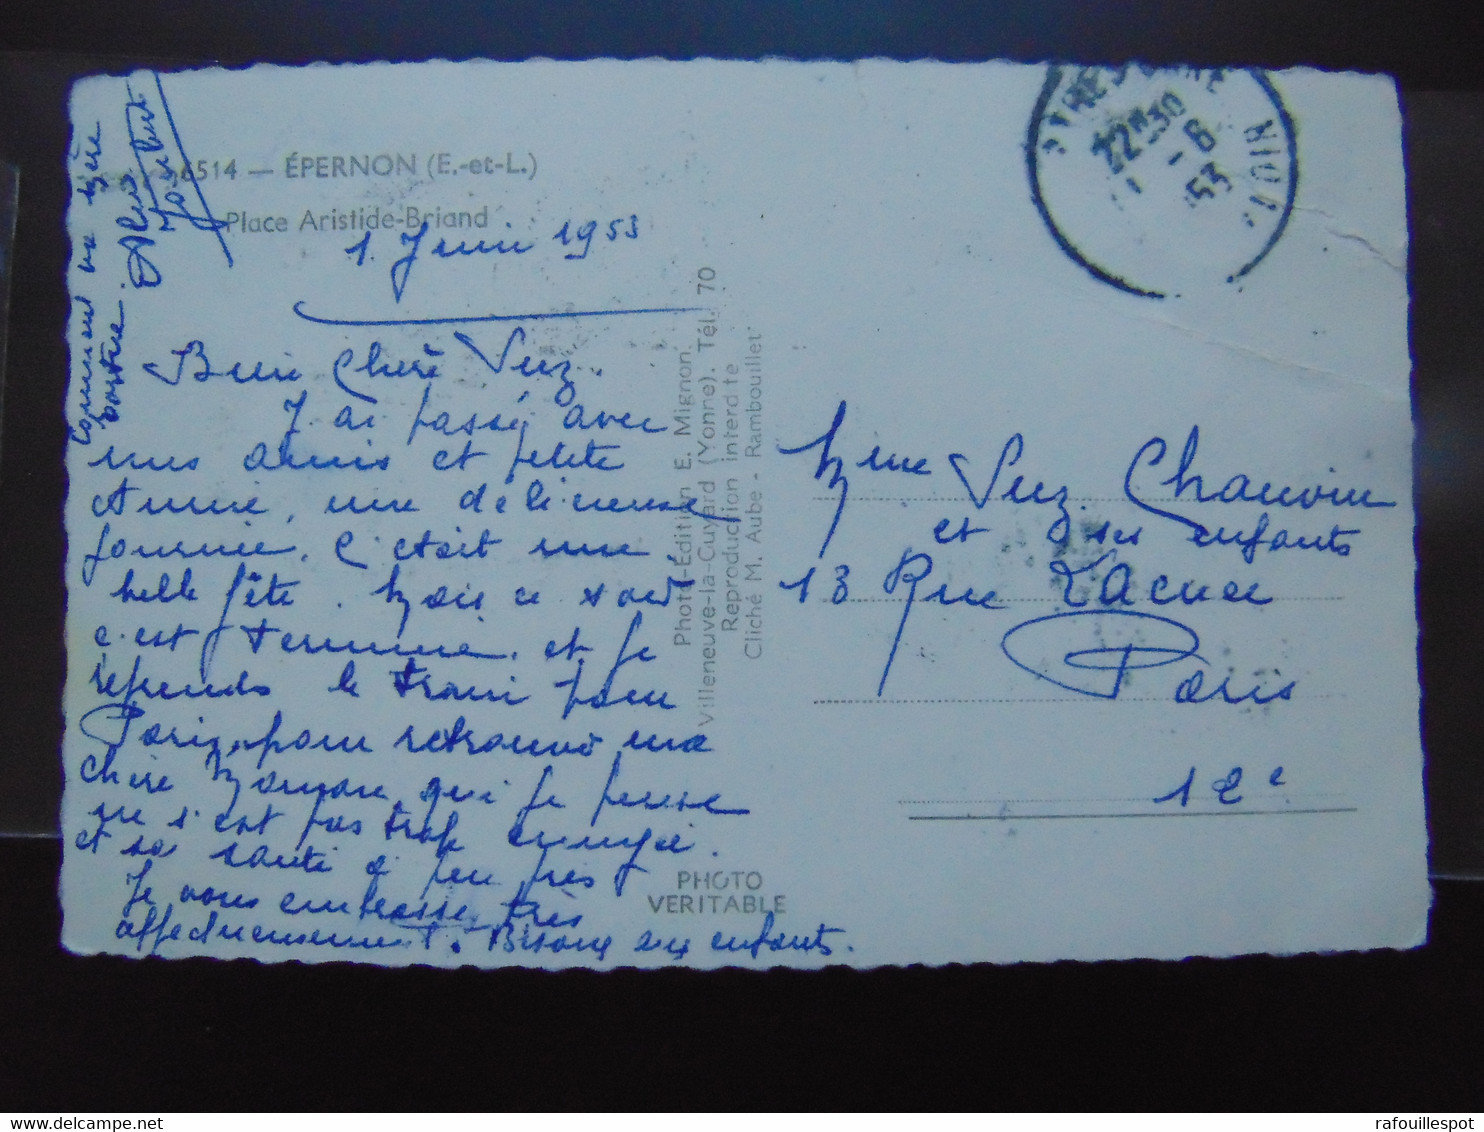 6514 — ÉPERNON (E.-et-L.)
Place Aristide-Briand
1. Juin 1953
Bien Chère Suz.
J'ai passé avec
mes amis et petite
Annie, une délicieuse
journée. C'était une
belle fête. Mais ce soir
c'est terminé et je
reprends le train pour
Paris, pour retrouver ma
chère Maman qui je pense
ne s'est pas trop ennuyé.
et sa santé à peu près
Je vous embrasse très
affectueusement. Bisoux aux enfants.
Comment va
votre
Photo-Edition E. Mignon
Villeneuve-la-Guyard (Yonne). Tél. 70
Reproduction interdite
Cliché M. Aube - Rambouillet
PHOTO
VERITABLE
22H30
1 - 6
53
Mme Suz Chauvin
et ses enfants
13 Rue Lacuée
Paris
12e
rafouillespot